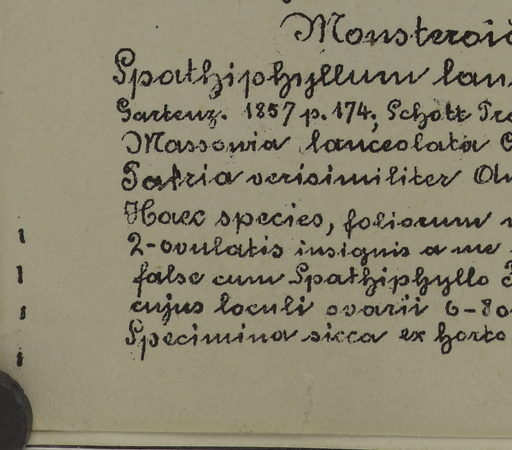 Monsteroi
Spathiphyllum lan
Gartenz. 1857 p. 174, Schott Pr
Massowia lanceolata
Patria verisimiliter
Haec species, foliorum
2-ovulatis insignis a me
false cum Spathiphyllo
cujus loculi ovarii 6-8
Specimina sicca ex horto